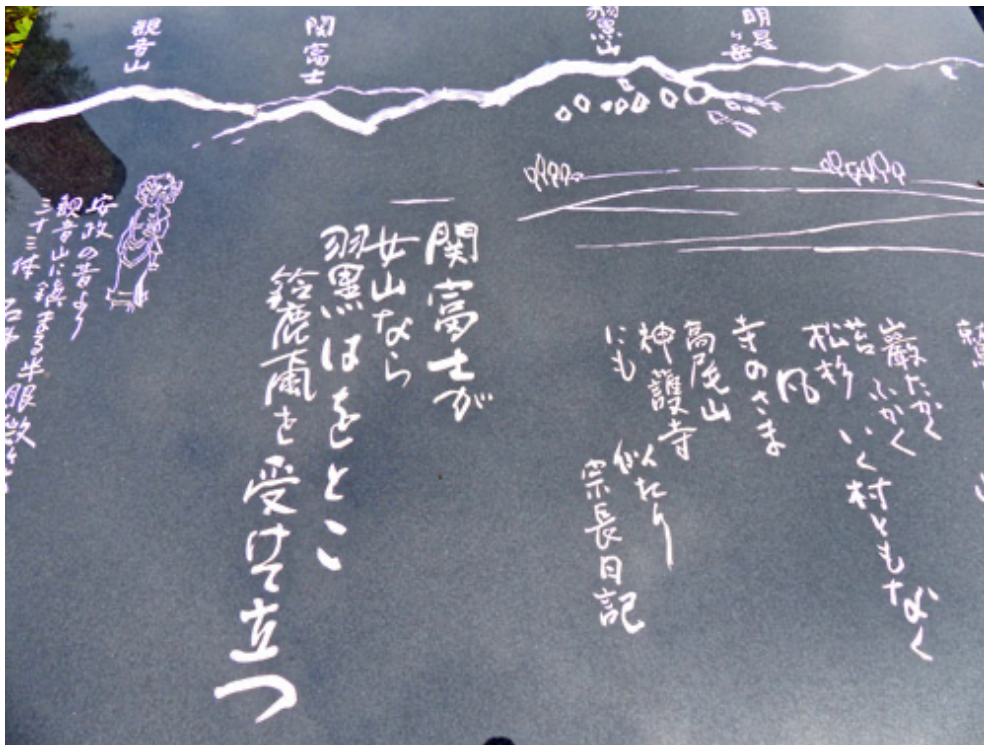 明星ヶ岳
羽黒山
関富士
観音山
巌たかく
苔ふかく
松杉 いく村ともなく
寺のさま
高尾山
神護寺
にも 似たり
宗長日記
関富士が
女山なら
羽黒はをとこ
鈴鹿颪を受けて立つ
安政の昔より
観音山に鎮まる半眼
三十三体